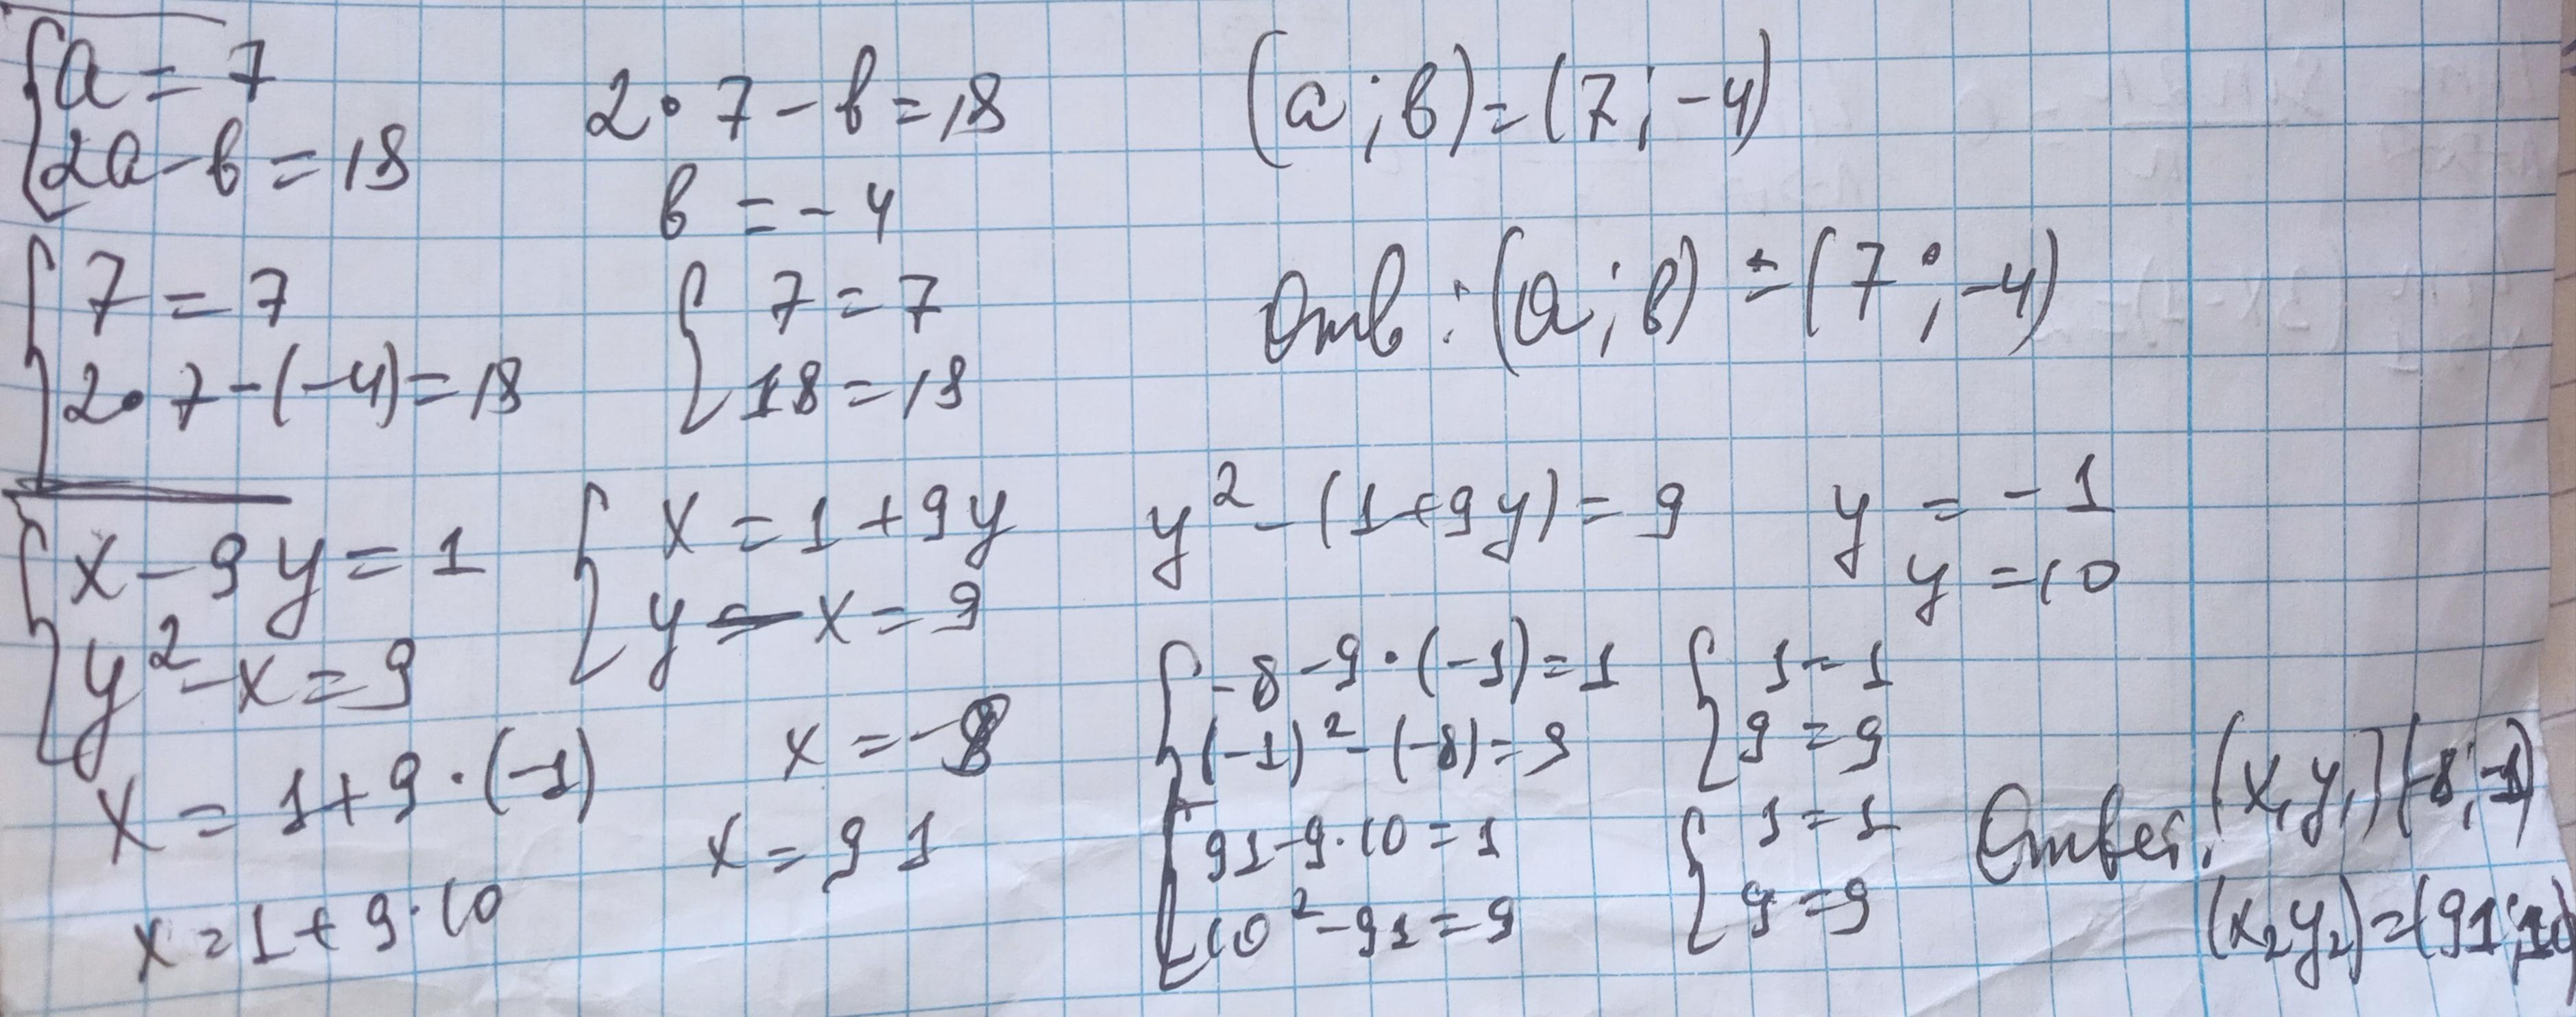 a = 7
2a - b = 18
2 · 7 - b = 18
b = - 4
(a ; b) = (7 ; -4)
7 = 7
2 · 7 - (-4) = 18
7 = 7
18 = 18
Отв : (a ; b) = (7 ; -4)
x - 9y = 1
y² - x = 9
x = 1 + 9y
y - x = 9
y² - (1 + 9y) = 9
y = - 1
y = 10
x = 1 + 9 · (-1)
x = -8
x = 1 + 9 · 10
x = 91
-8 - 9 · (-1) = 1
(-1)² - (-8) = 9
1 = 1
9 = 9
91 - 9 · 10 = 1
10² - 91 = 9
1 = 1
9 = 9
Ответ: (x₁ y₁) (-8 ; -1)
(x₂ y₂) = (91 ; 10)